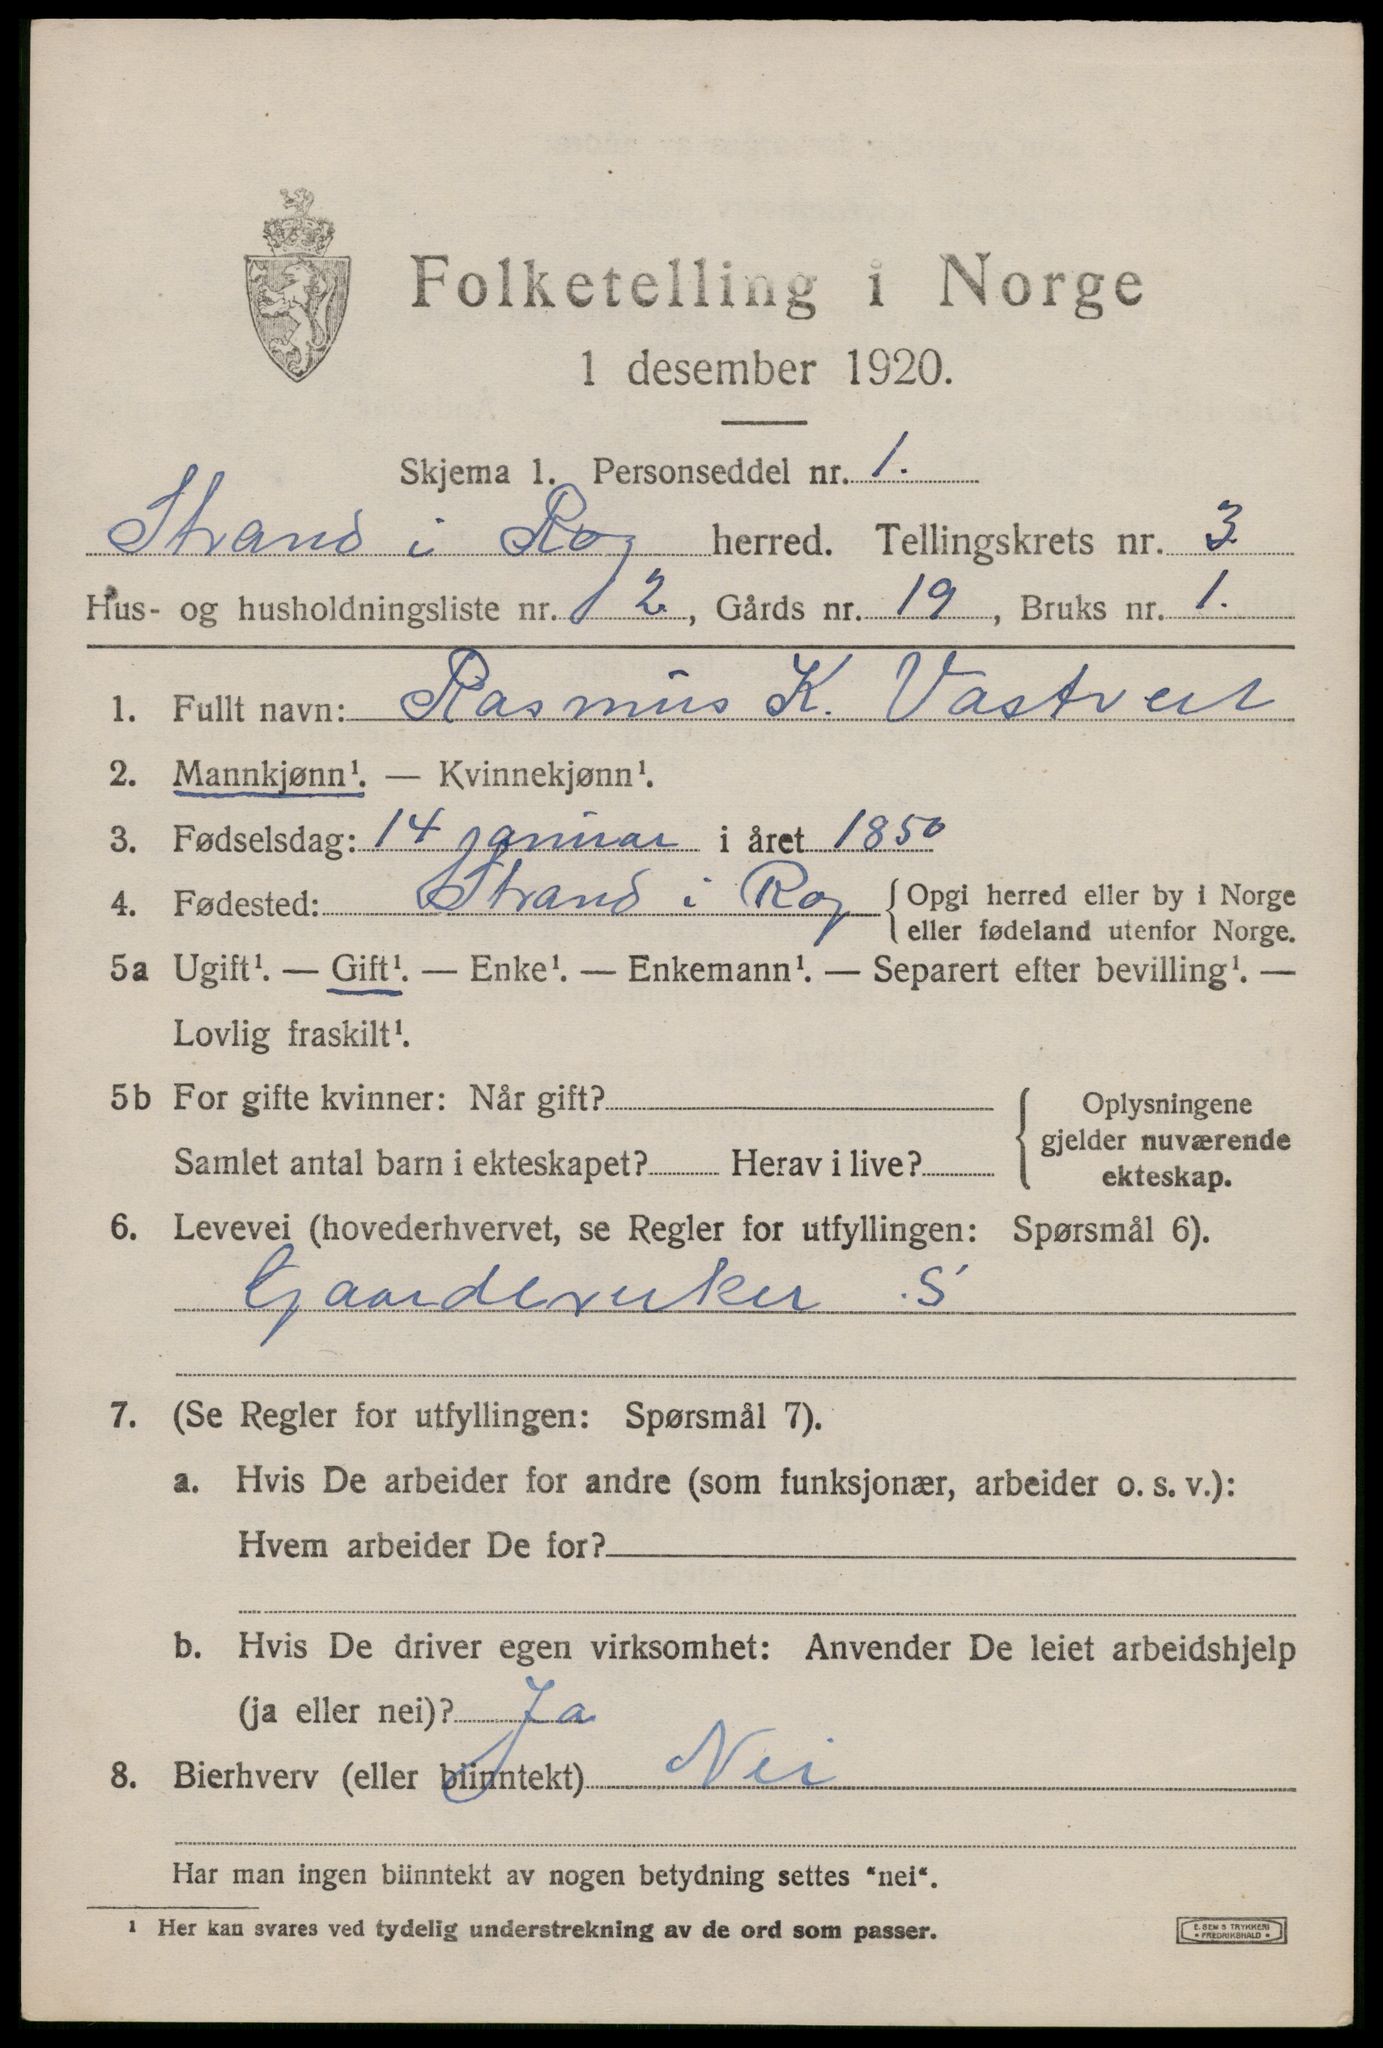 Folketelling i Norge
1 desember 1920.
Skjema 1. Personseddel nr. 1.
Strand i Rog herred. Tellingskrets nr. 3
Hus- og husholdningsliste nr. 12, Gårds nr. 19, Bruks nr. 1.
1. Fullt navn: Rasmus K. Vastveit
2. Mannkjønn¹. — Kvinnekjønn¹.
3. Fødselsdag: 14 januar i året 1850
4. Fødested: Strand i Rog { Opgi herred eller by i Norge
eller fødeland utenfor Norge.
5a Ugift¹. — Gift¹. — Enke¹. — Enkemann¹. — Separert efter bevilling¹. —
Lovlig fraskilt¹.
5b For gifte kvinner: Når gift? { Oplysningene
gjelder nuværende
Samlet antal barn i ekteskapet? Herav i live?
ekteskap.
6. Levevei (hovederhvervet, se Regler for utfyllingen: Spørsmål 6).
Gaardbruker S
7. (Se Regler for utfyllingen: Spørsmål 7).
a. Hvis De arbeider for andre (som funksjonær, arbeider o. s. v.):
Hvem arbeider De for?
b. Hvis De driver egen virksomhet: Anvender De leiet arbeidshjelp
(ja eller nei)? Ja
8. Bierhverv (eller biinntekt) Nei
Har man ingen biinntekt av nogen betydning settes "nei".
¹ Her kan svares ved tydelig understrekning av de ord som passer.
E. SEM'S TRYKKERI
• FREDRIKSHALD •